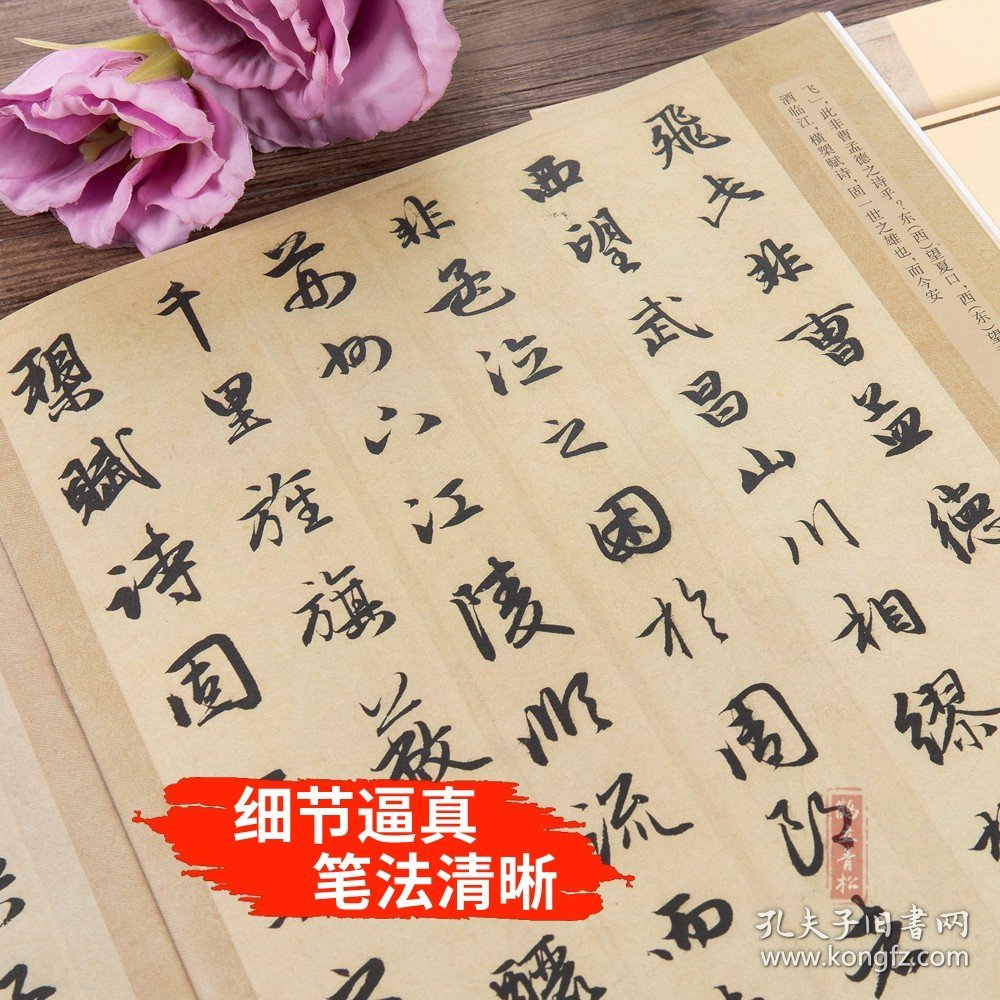 飞」，此非曹孟德之诗乎？东（西）望夏口，西（东）望
酒临江，横槊赋诗，固一世之雄也，而今安
飛此非曹孟德
西望武昌山川相繆
非孟德之困於周郎者
荊州下江陵順流而
千里旌旗蔽 釃
槊賦詩固
细节逼真
笔法清晰
孔夫子旧书网
www.kongfz.com